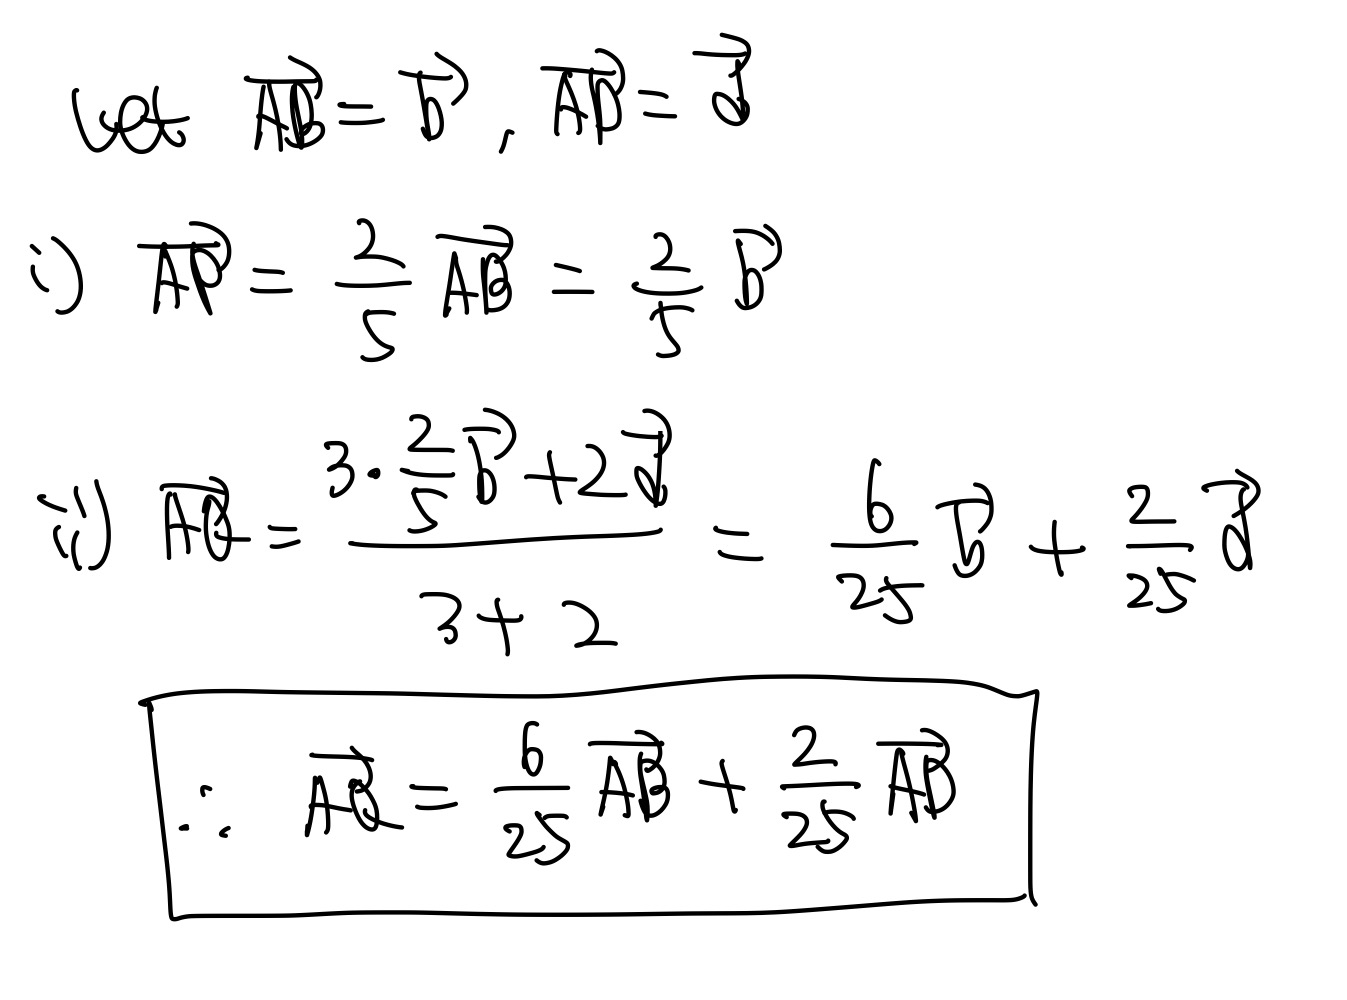 Let $\overrightarrow{AB} = \vec{b}$, $\overrightarrow{AD} = \vec{d}$
i) $\overrightarrow{AP} = \frac{2}{5} \overrightarrow{AB} = \frac{2}{5} \vec{b}$
ii) $\overrightarrow{AQ} = \frac{3 \cdot \frac{2}{5} \vec{b} + 2 \vec{d}}{3 + 2} = \frac{6}{25} \vec{b} + \frac{2}{25} \vec{d}$
$\therefore \overrightarrow{AQ} = \frac{6}{25} \overrightarrow{AB} + \frac{2}{25} \overrightarrow{AD}$